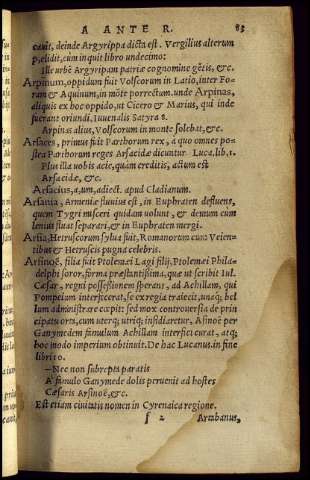 A ANTE R. 83
cauit, deinde Argyrippa dicta est. Vergilius alterum
p̱ elidit, cum inquit libro undecimo:
Ille urbẽ Argyripam patriæ cognomine gẽtis, &c.
Arpinum, oppidum fuit Volscorum in Latio, inter Fo-
ram & Aquinum, in mõte porrectum. unde Arpinas,
aliquis ex hoc oppido, ut Cicero & Marius, qui inde
fuerant oriundi, Iuuenalis Satyra 8.
Arpinas alius, Volscorum in monte solebat, &c.
Arsaces, primus fuit Parthorum rex, a quo omnes po-
stea Parthorum reges Arsacidæ dicuntur Luca. lib. 1.
Plus illa uobis acie, quàm creditis, actum est
Arsacidæ, &c.
Arsacius, a, um, adiect. apud Cladianum.
Arsania, Armeniæ fluuius est, in Euphraten defluens,
quem Tygri misceri quidam uolunt, & demum cum
lenius fluat separari, & in Euphraten mergi.
Arsia, Hetruscorum sylua fuit, Romanorum cum Veien-
tibus & Hetruscis pugna celebris.
Arsinoë, filia fuit Ptolemæi Lagi filij, Ptolemæi Phila-
delphi soror, forma præstantissima, quæ ut scribit Iul.
Cæsar, regni possessionem sperans, ad Achillam, qui
Pompeium interfecerat, se ex regia traiecit, unaq; bel
lum administrare cœpit: sed mox controuersia de prin
cipatu orta, cum uterq; utriq; insidiaretur, Arsinoë per
Ganymedem simulum Achillam interfici curat, atq;
hoc modo imperium obtinuit. De hac Lucanus, in fine
libri 10.
—Nec non subrepta paratis
A' famulo Ganymede dolis peruenit ad hostes
Cæsaris Arsinoë, &c.
Est etiam ciuitatis nomen in Cyrenaica regione.
f 2 Artabanus,